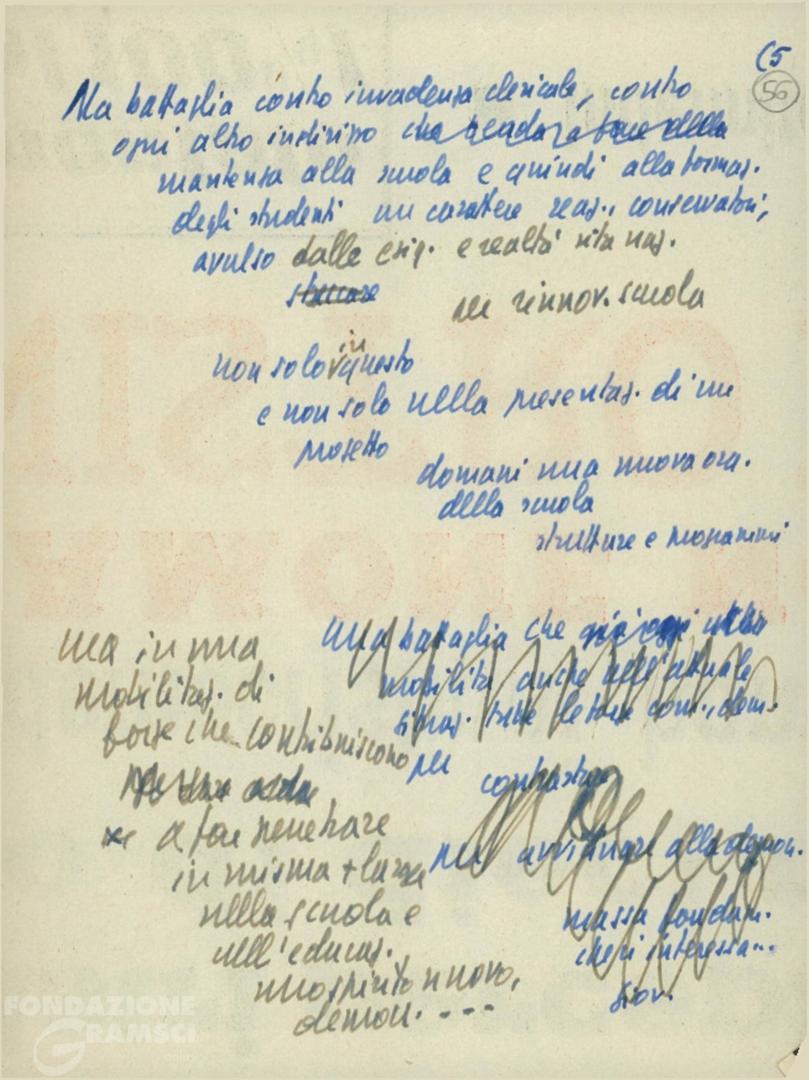 (5
56
Una battaglia contro invadenza clericale, contro
ogni altro indirizzo che
mantenga alla scuola e quindi alla formaz.
degli studenti un carattere reaz., conservatori,
avulso dalle esig. e realtà vita naz.
staccare
per rinnov. scuola
in
non solo questo
e non solo nella presentaz. di un
progetto
domani una nuova org.
della scuola
strutture e programmi
una battaglia che già oggi
mobilita anche nell'attuale
situaz. tutte le forze com., dem.
per
contrastare
per avvicinare alla democr.
massa fondam.
che ci interessa...
giov.
ma in una
mobilitaz. di
forze che contribuiscono
a far penetrare
in misura + larga
nella scuola e
nell'educaz.,
uno spirito nuovo,
democr. - - -
FONDAZIONE
GRAMSCI